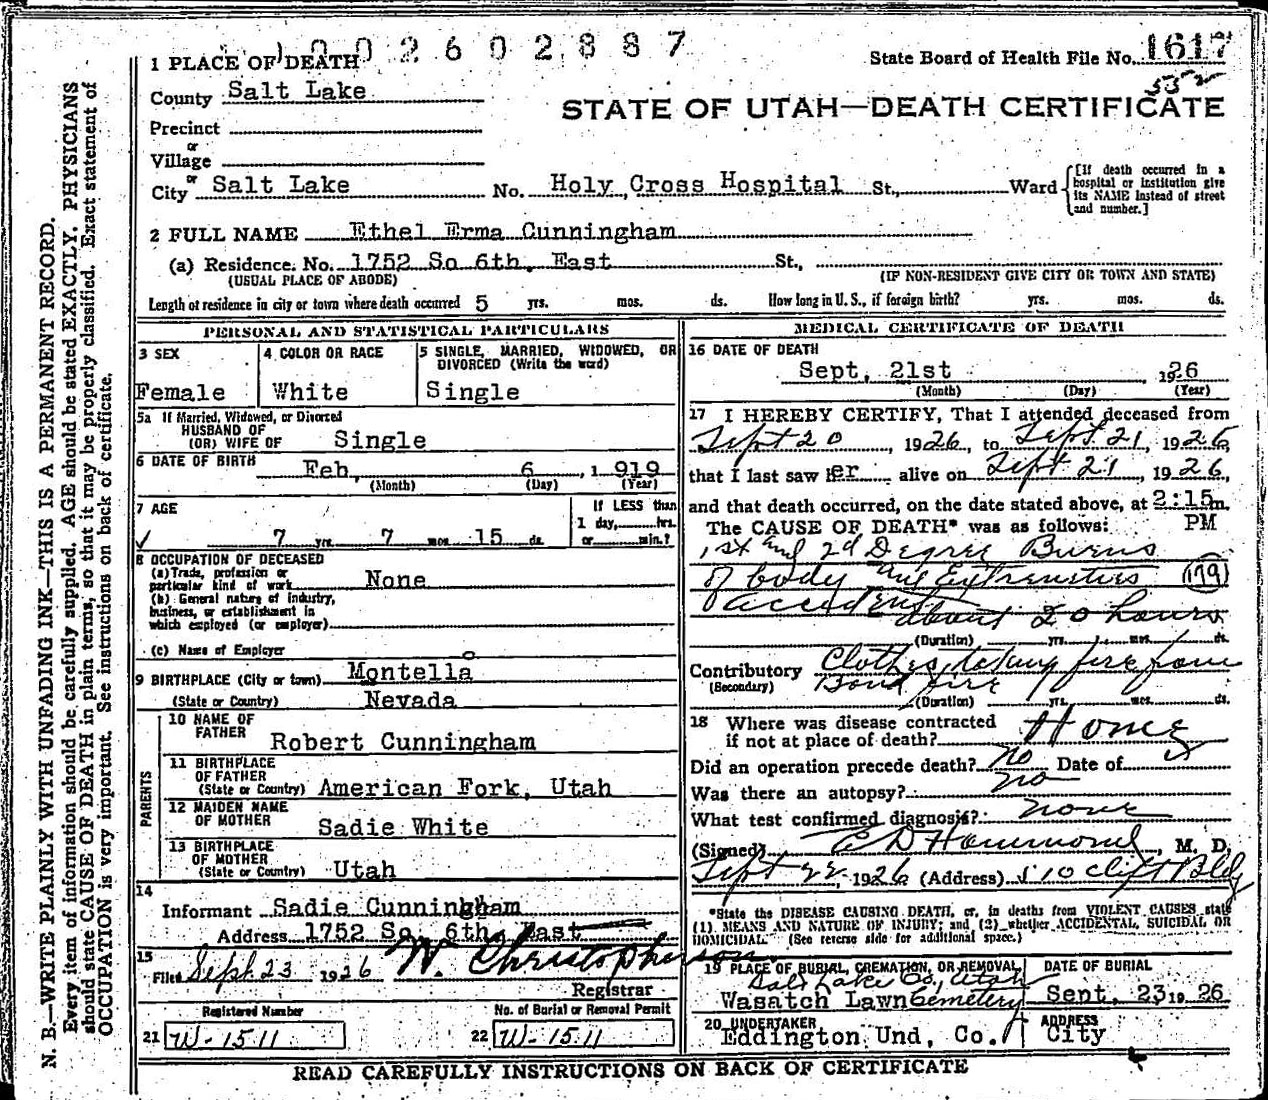 1002602887
1 PLACE OF DEATH
State Board of Health File No. 1617
552
County Salt Lake
STATE OF UTAH—DEATH CERTIFICATE
Precinct
or
Village
or
City Salt Lake No. Holy Cross Hospital St., Ward
[If death occurred in a hospital or institution give its NAME instead of street and number.]
2 FULL NAME Ethel Erma Cunningham
(a) Residence. No. 1752 So 6th. East St.,
(USUAL PLACE OF ABODE) (IF NON-RESIDENT GIVE CITY OR TOWN AND STATE)
Length of residence in city or town where death occurred 5 yrs. mos. ds. How long in U. S., if foreign birth? yrs. mos. ds.
PERSONAL AND STATISTICAL PARTICULARS
3 SEX
Female
4 COLOR OR RACE
White
5 SINGLE, MARRIED, WIDOWED, OR
DIVORCED (Write the word)
Single
5a If Married, Widowed, or Divorced
HUSBAND OF
(OR) WIFE OF Single
6 DATE OF BIRTH Feb. 6, 1919
(Month) (Day) (Year)
7 AGE
7 yrs. 7 mos. 15 ds.
If LESS than
1 day, hrs.
or min.?
8 OCCUPATION OF DECEASED
(a) Trade, profession or
particular kind of work None
(b) General nature of industry,
business, or establishment in
which employed (or employer)
(c) Name of Employer
9 BIRTHPLACE (City or town) Montella
o
(State or Country) Nevada
PARENTS
10 NAME OF
FATHER Robert Cunningham
11 BIRTHPLACE
OF FATHER
(State or Country) American Fork, Utah
12 MAIDEN NAME
OF MOTHER Sadie White
13 BIRTHPLACE
OF MOTHER
(State or Country) Utah
14
Informant Sadie Cunningham
Address 1752 So. 6th. East
15
Filed Sept. 23 1926 W. Christopherson
Registrar
Registered Number
21 W-1511
No. of Burial or Removal Permit
22 W-1511
MEDICAL CERTIFICATE OF DEATH
16 DATE OF DEATH
Sept. 21st, 1926
(Month) (Day) (Year)
17 I HEREBY CERTIFY, That I attended deceased from
Sept 20, 1926, to Sept. 21, 1926,
that I last saw er alive on Sept 21, 1926,
and that death occurred, on the date stated above, at 2:15 m.
PM
The CAUSE OF DEATH* was as follows:
1st and 2d Degree Burns
of body and Extremeties 179
accident about 20 hours
(Duration) yrs. mos. ds.
Contributory Clothes taking fire from
(Secondary) Bond fire
(Duration) yrs. mos. ds.
18 Where was disease contracted
if not at place of death? Home
Did an operation precede death? no Date of
Was there an autopsy? no
What test confirmed diagnosis? none
(Signed) E D Hammond, M. D.
Sept 22, 1926 (Address) 110 Clift Bldg
*State the DISEASE CAUSING DEATH, or, in deaths from VIOLENT CAUSES, state
(1) MEANS AND NATURE OF INJURY; and (2) whether ACCIDENTAL, SUICIDAL OR
HOMICIDAL. (See reverse side for additional space.)
19 PLACE OF BURIAL, CREMATION, OR REMOVAL
Salt Lake Co, Utah
Wasatch Lawn Cemetery
DATE OF BURIAL
Sept. 23 1926
20 UNDERTAKER
Eddington Und. Co.
ADDRESS
City
READ CAREFULLY INSTRUCTIONS ON BACK OF CERTIFICATE
N. B.—WRITE PLAINLY WITH UNFADING INK—THIS IS A PERMANENT RECORD.
Every item of information should be carefully supplied. AGE should be stated EXACTLY. PHYSICIANS
should state CAUSE OF DEATH in plain terms, so that it may be properly classified. Exact statement of
OCCUPATION is very important. See instructions on back of certificate.